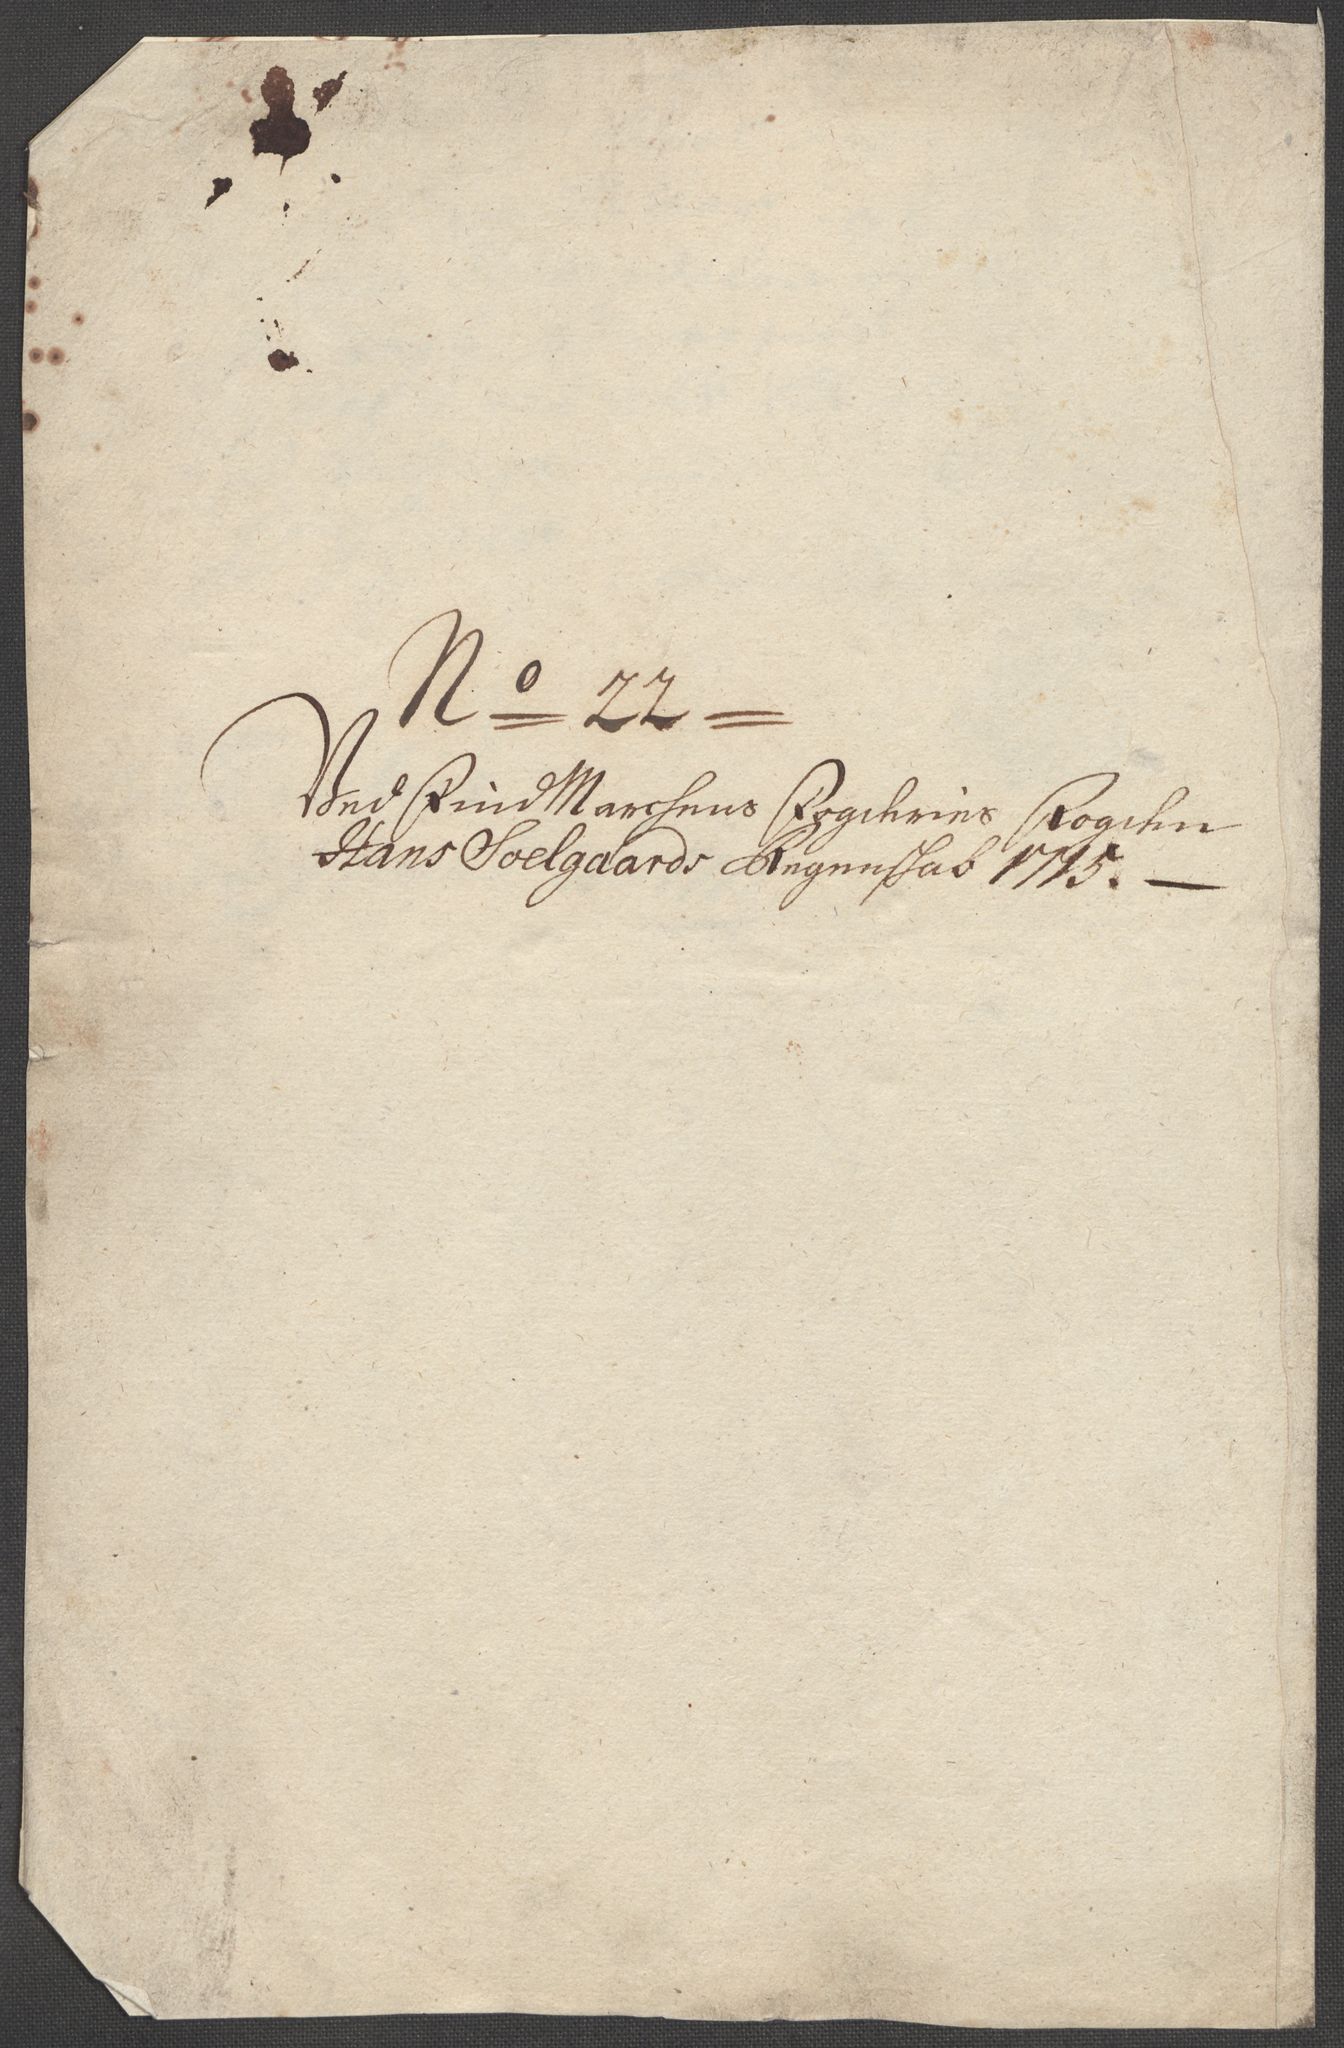 No 22
Ved FindMarchens Fogderies Fogden
Hans Soelgaards Regenskab 1715.